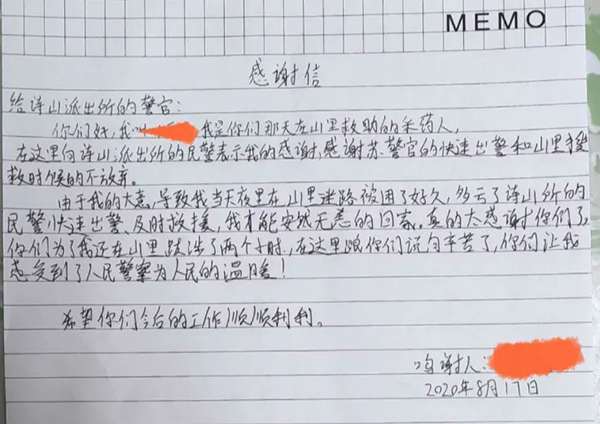 MEMO
感谢信
给诗山派出所的警官:
你们好,我 我是你们那天在山里救助的采药人,
在这里向诗山派出所的民警表示我的感谢,感谢苏警官的快速出警和山里搜
救时候的不放弃。
由于我的大意,导致我当天夜里在山里迷路被困了好久,多亏了诗山所的
民警快速出警及时救援,我才能安然无恙的回家,真的太感谢你们了,
你们为了我还在山里跋涉了两个小时,在这里跟你们说句辛苦了,你们让我
感受到了人民警察为人民的温暖!
希望你们今后的工作顺顺利利。
鸣谢人:
2020年8月17日